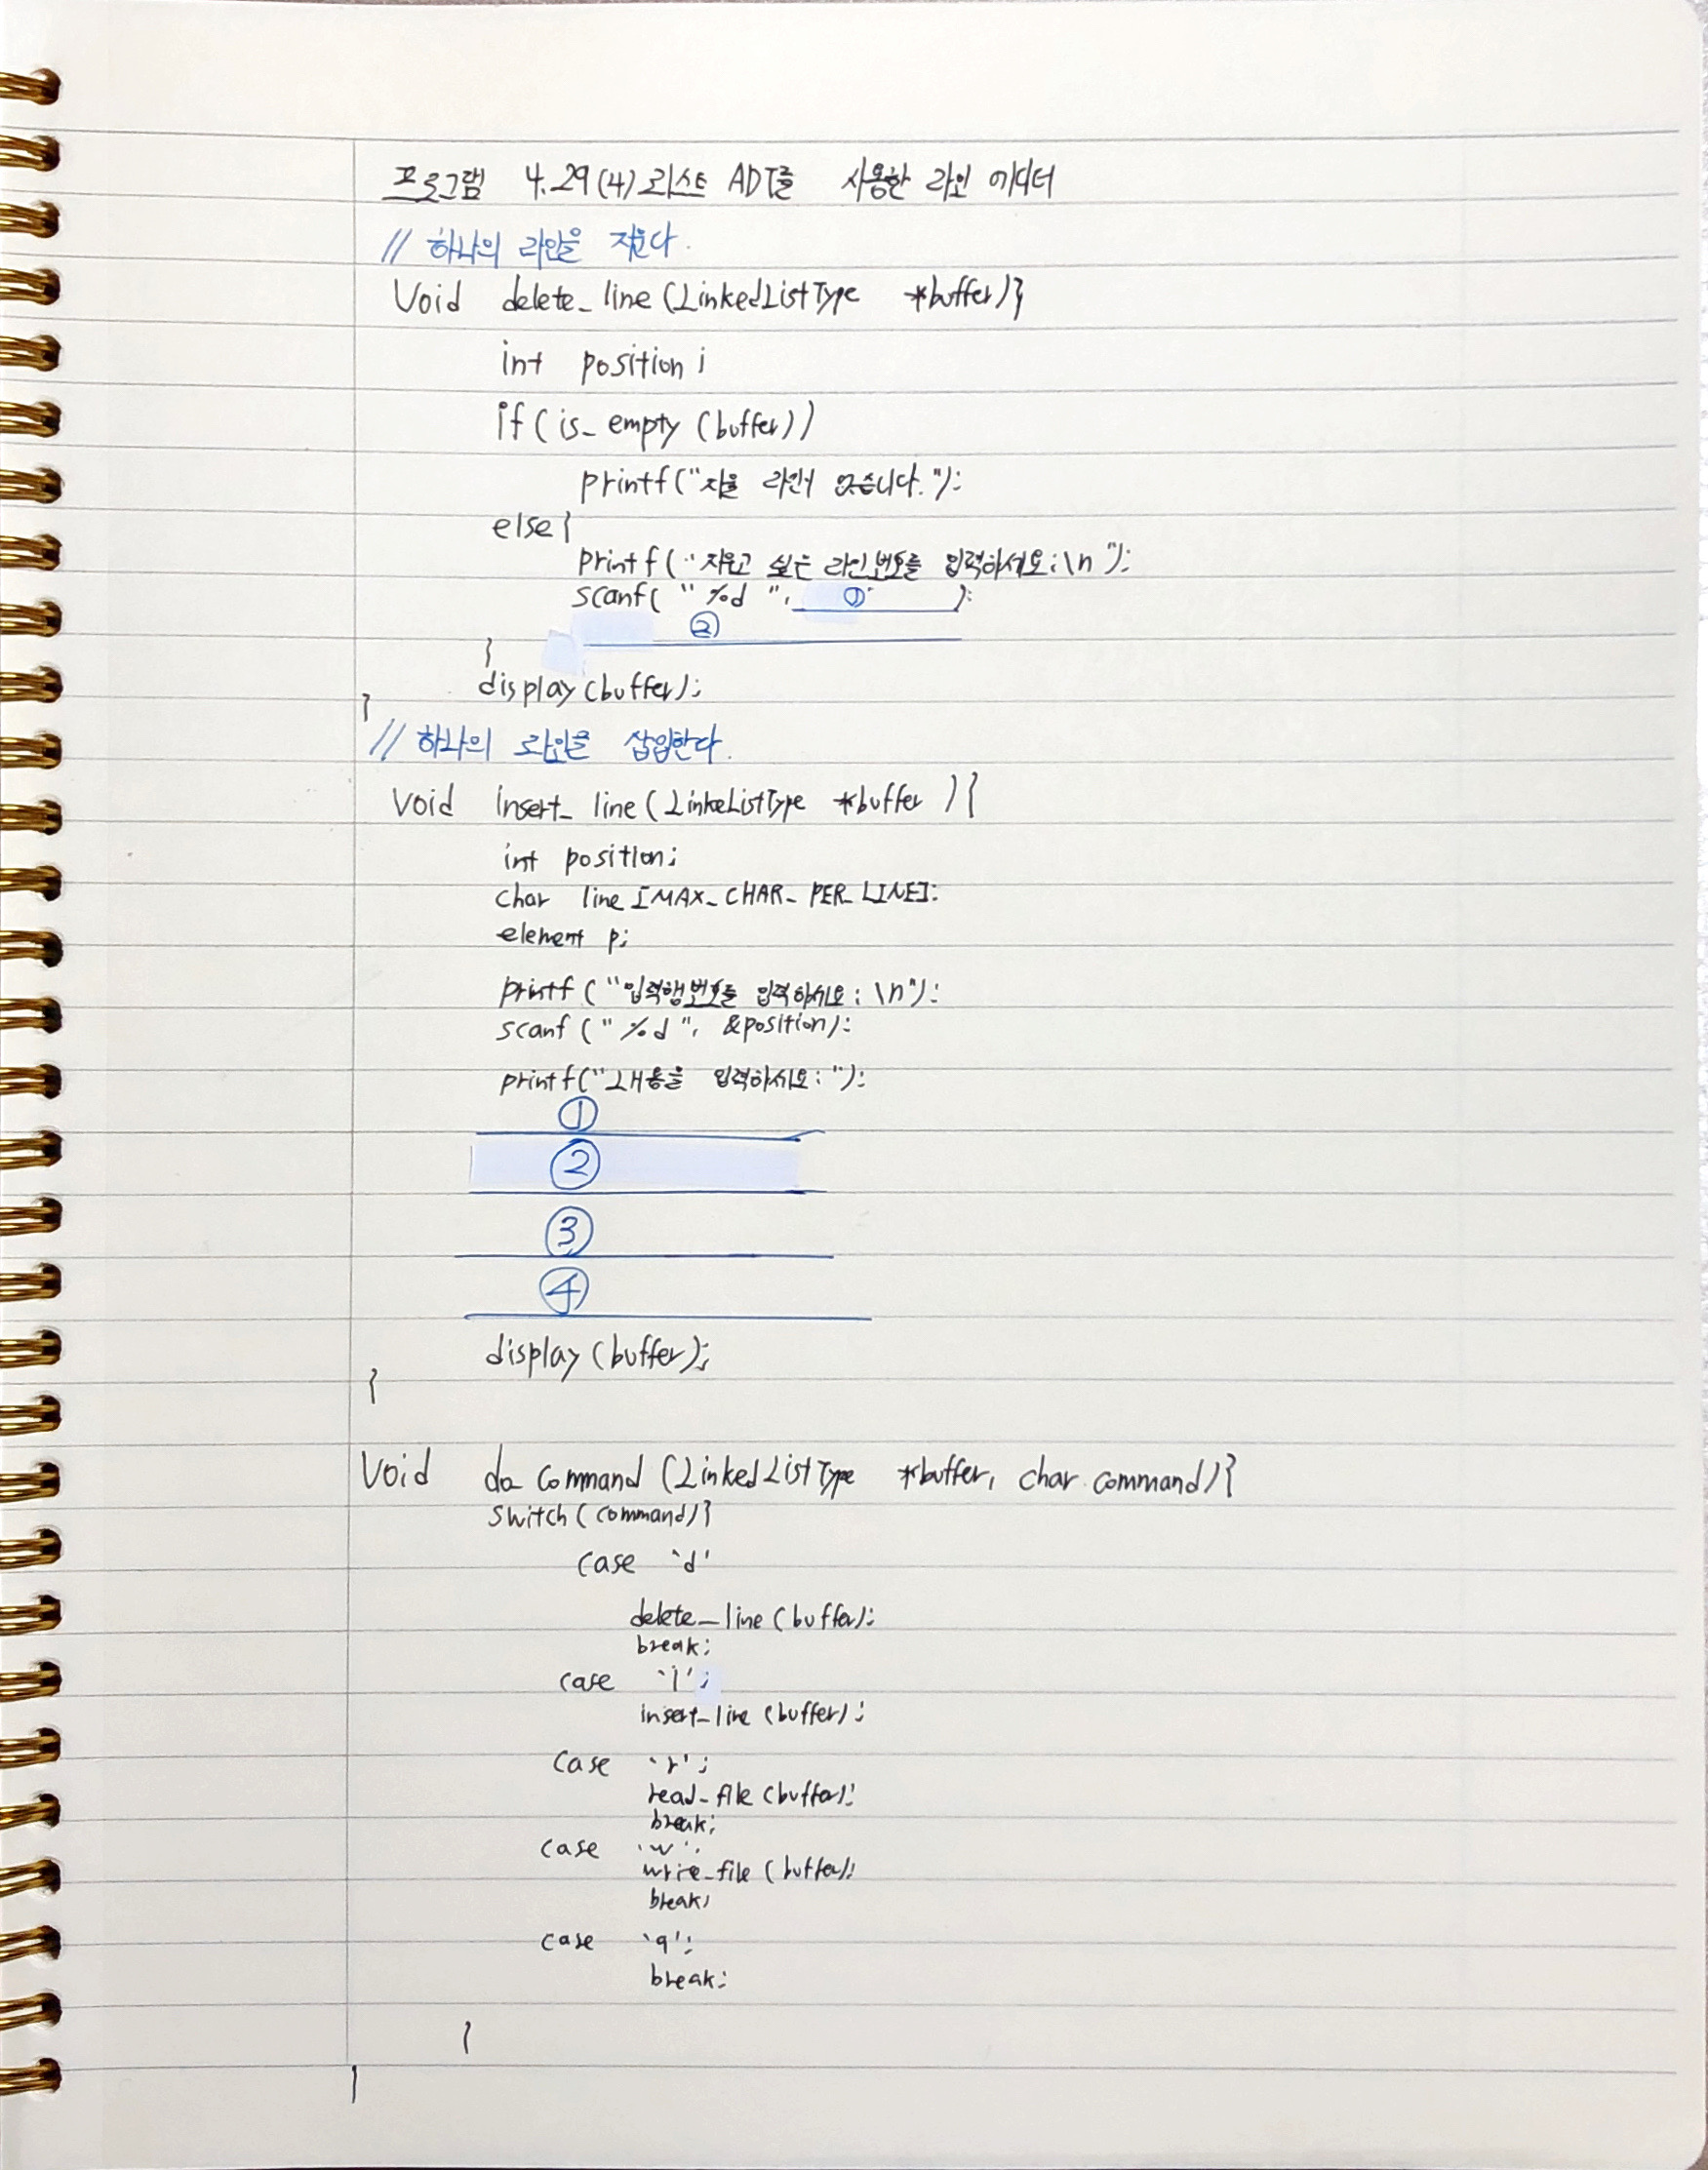 프로그램 4.29(4)리스트 ADT를 사용한 라인 에디터
// 하나의 라인을 지운다.
Void delete_line(LinkedListType *buffer){
int position;
if(is_empty(buffer))
printf("지울 라인이 없습니다.");
else{
printf("지우고 싶은 라인번호를 입력하세요:\n");
scanf("%d", ① );
②
}
display(buffer);
}
// 하나의 라인을 삽입한다.
Void insert_line(LinkeListType *buffer){
int position;
char line[MAX_CHAR_PER_LINE];
element p;
printf("입력행번호를 입력하시오:\n");
scanf("%d", &position);
printf("내용을 입력하시오:");
①
②
③
④
display(buffer);
}
Void do command(LinkedListType *buffer, char command){
switch(command){
case 'd'
delete_line(buffer);
break;
case 'i';
insert_line(buffer);
case 'r';
read_file(buffer);
break;
case 'w';
write_file(buffer);
break;
case 'q';
break;
}
}